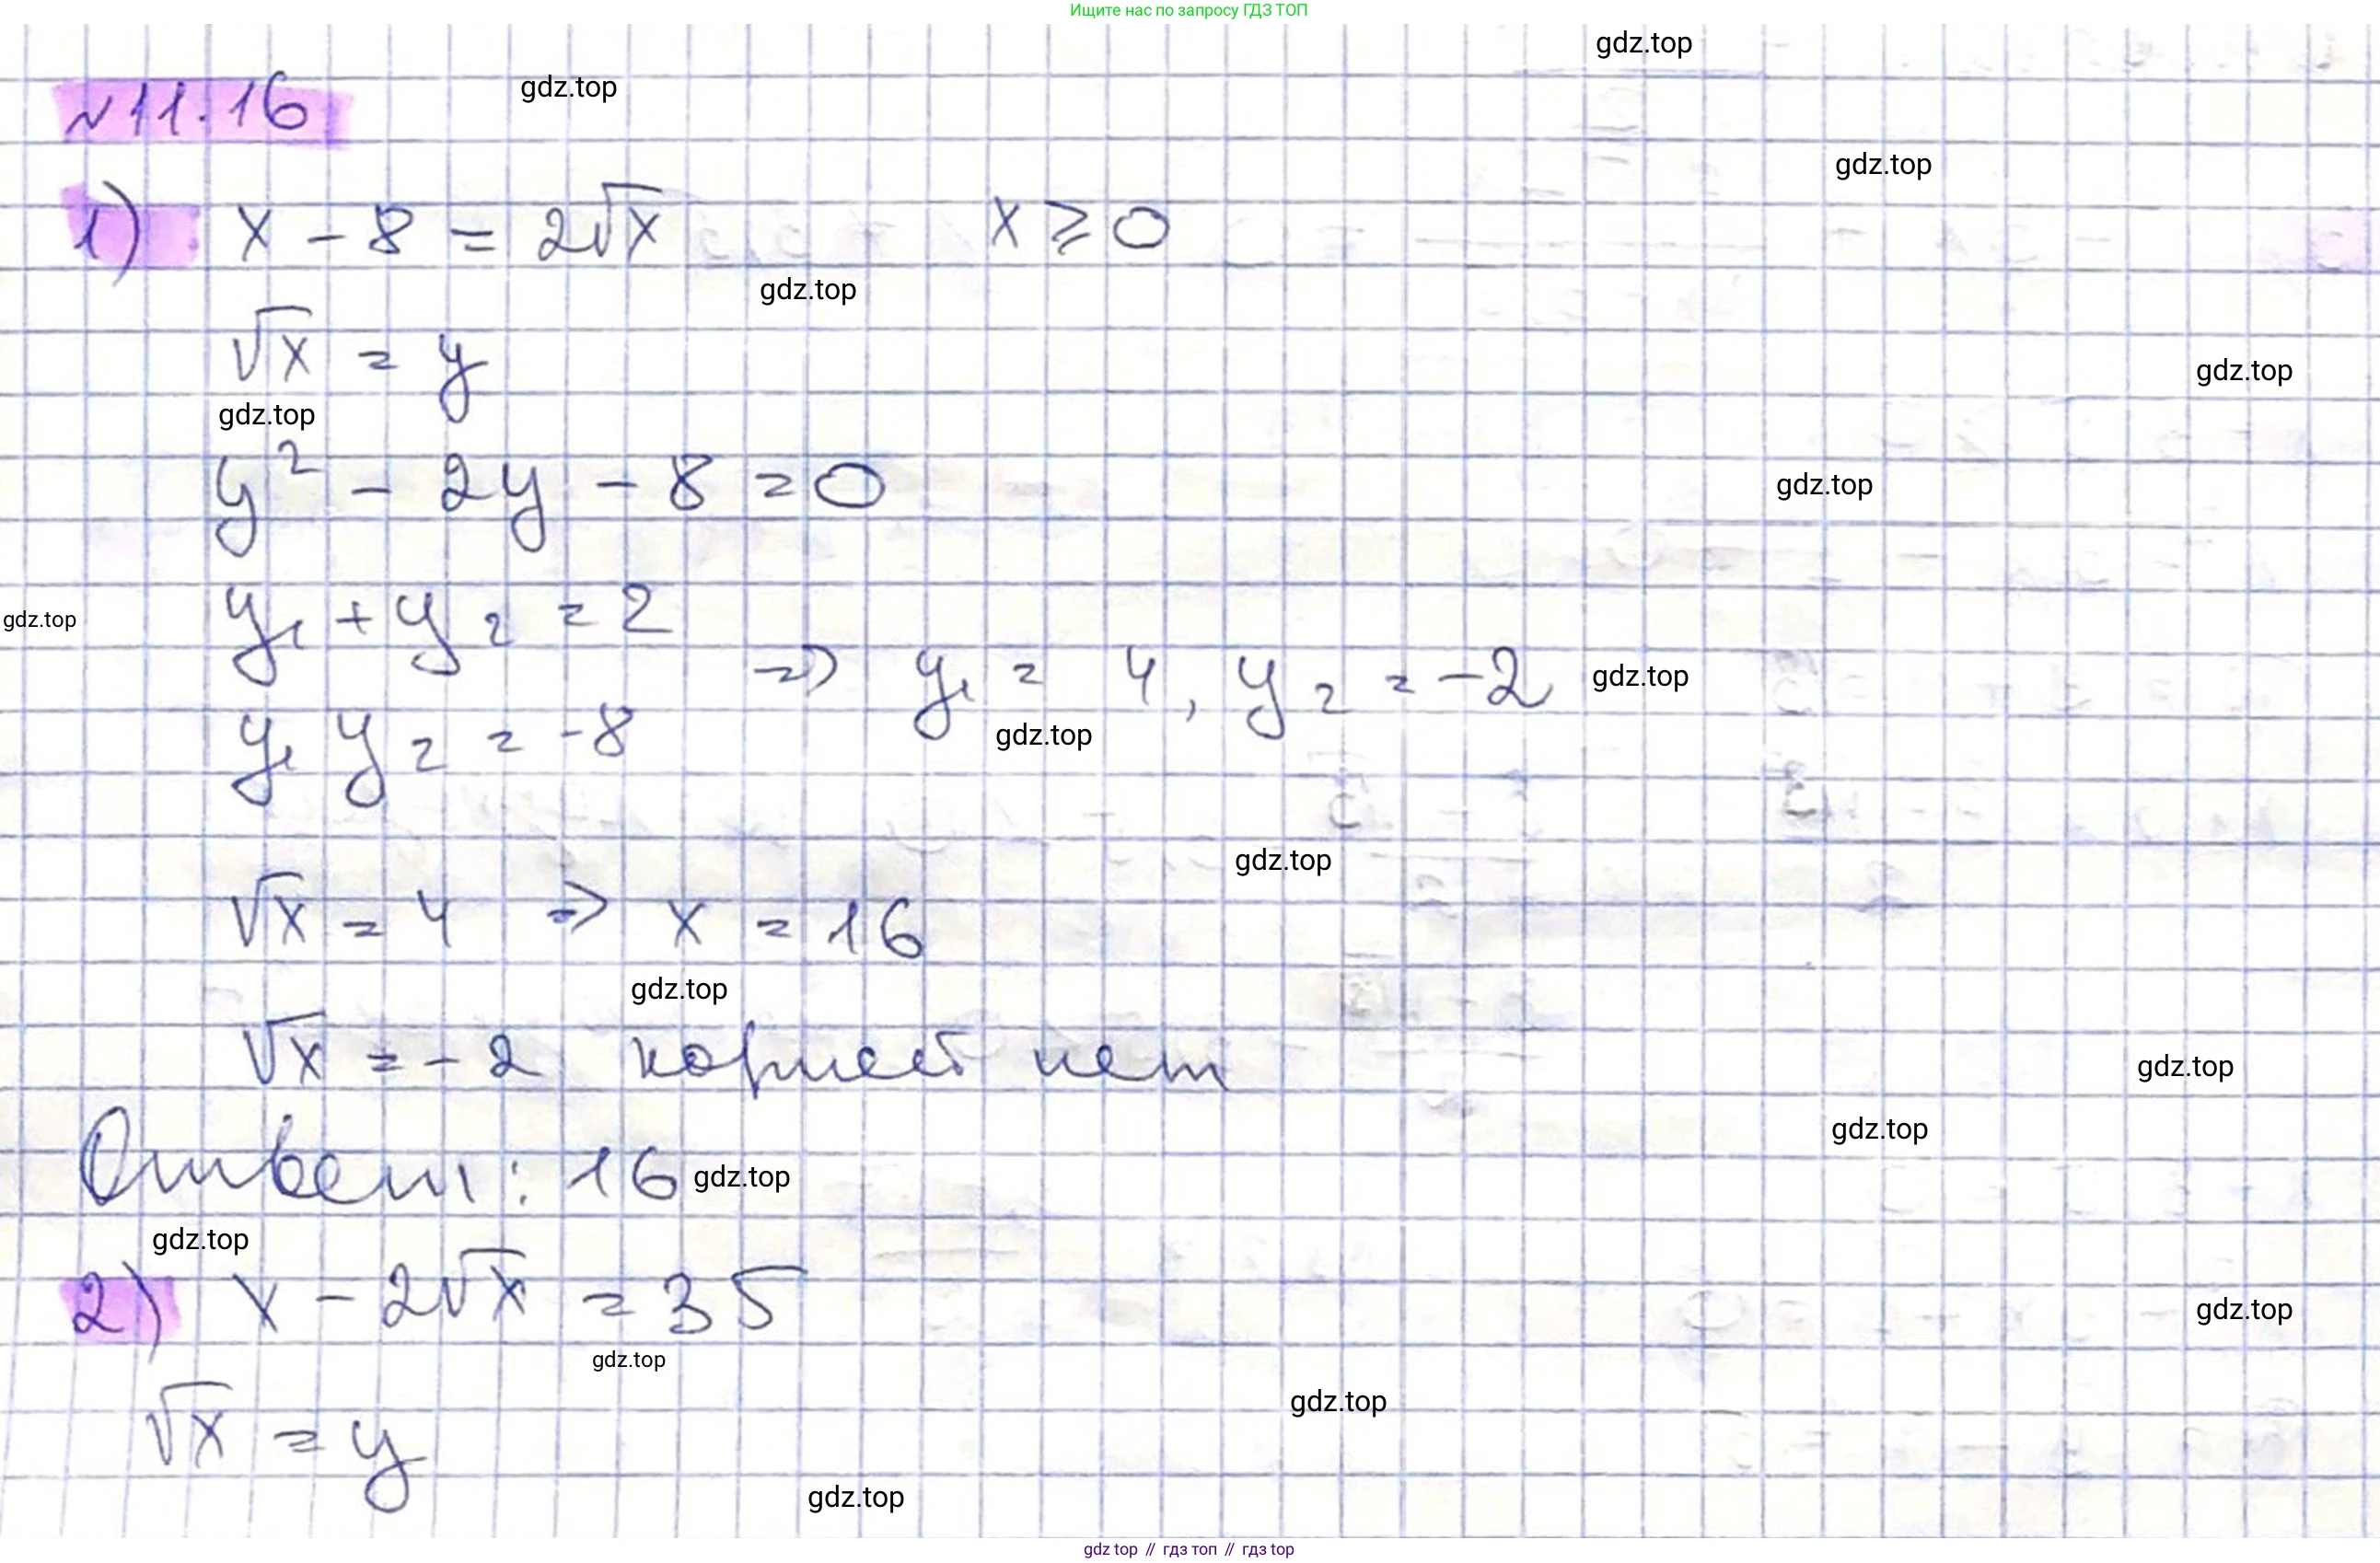 Ищите нас по запросу ГДЗ ТОП
gdz.top
№11.16
gdz.top
gdz.top
1) x - 8 = 2√x x ≥ 0
gdz.top
√x = y
gdz.top
gdz.top
y² - 2y - 8 = 0
gdz.top
y₁ + y₂ = 2
gdz.top
⇒ y₁ = 4, y₂ = -2
gdz.top
y₁ y₂ = -8
gdz.top
gdz.top
√x = 4 ⇒ x = 16
gdz.top
√x = -2 корней нет
gdz.top
gdz.top
Ответ: 16
gdz.top
gdz.top
2) x - 2√x = 35
gdz.top
gdz.top
gdz.top
√x = y
gdz.top
gdz top // гдз топ // гдз top